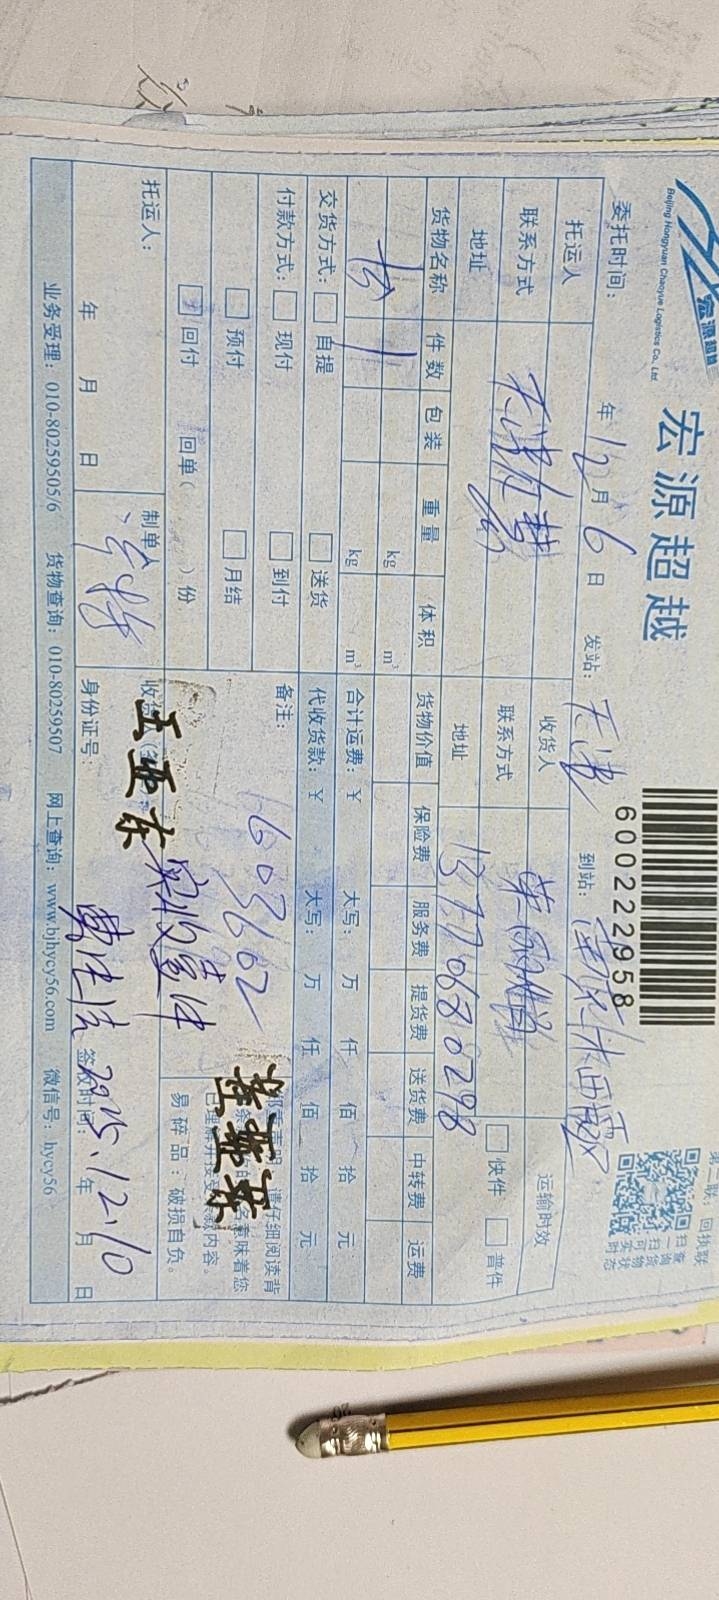 宏源超越
Beijing Hongyuan Chaoyue Logistics Co., Ltd
宏源超越
600222958
第二联：回执联
扫一扫
查询货物状态
委托时间： 年12月6日 发站：天津 到站：
托运人 天津 收货人 运输时效
联系方式 联系方式 快件 普件
地址 地址 13770680298
货物名称 件数 包装 重量 体积 货物价值 保险费 服务费 提货费 送货费 中转费 运费
kg m³
1 kg m³ 合计运费：¥ 大写： 万 仟 佰 拾 元
交货方式： 自提 送货 代收货款：¥ 大写： 万 仟 佰 拾 元
付款方式： 现付 到付 备注：
预付 月结 1603662
回付 回单( )份
请仔细阅读背
意味着您
内容。
易碎品：破损自负。
王亚东
实收壹件
托运人： 制单人
年 月 日 身份证号： 签收时间： 2025.12.10 年 月 日
业务受理：010-80259505/6 货物查询：010-80259507 网上查询：www.bjhycy56.com 微信号：hycy56